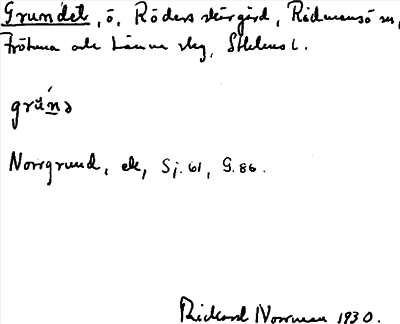 Grundet, ö, Röders skärgård, Rådmansö sn,
Frötuna och Länna skg, Sthlms l.
grún̲ə
Norrgrund, ek, Sj. 61, G. 86.
Rickard Norrman 1930.